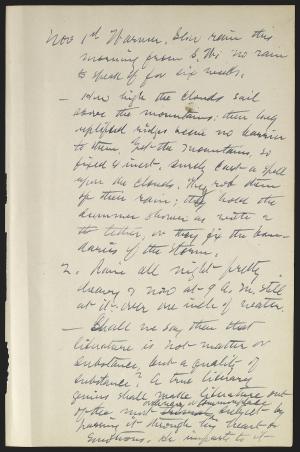 Nov 1st Warm. Slow rain this
morning from S. W; no rain
to speak of for six weeks.
— How high the clouds sail
above the mountains; their long
uplifted ridges seem no barrier
to them. Yet the mountains, so
fixed & inert, surely cast a spell
upon the clouds. They rob them
of their rain; they hold the
summer shower as with a
tether, or they fix the boun-
daries of the storm.
2. Rain all night pretty
heavy & now at 9 A. m. still
at it - over one inch of water.
— Shall we say then that
literature is not matter or
substance, but a quality of
substance; A true literary
genius shall make literature out
of the most ordinary & commonplace trivial subject by
passing it through his heart &
emotions. He imparts to it